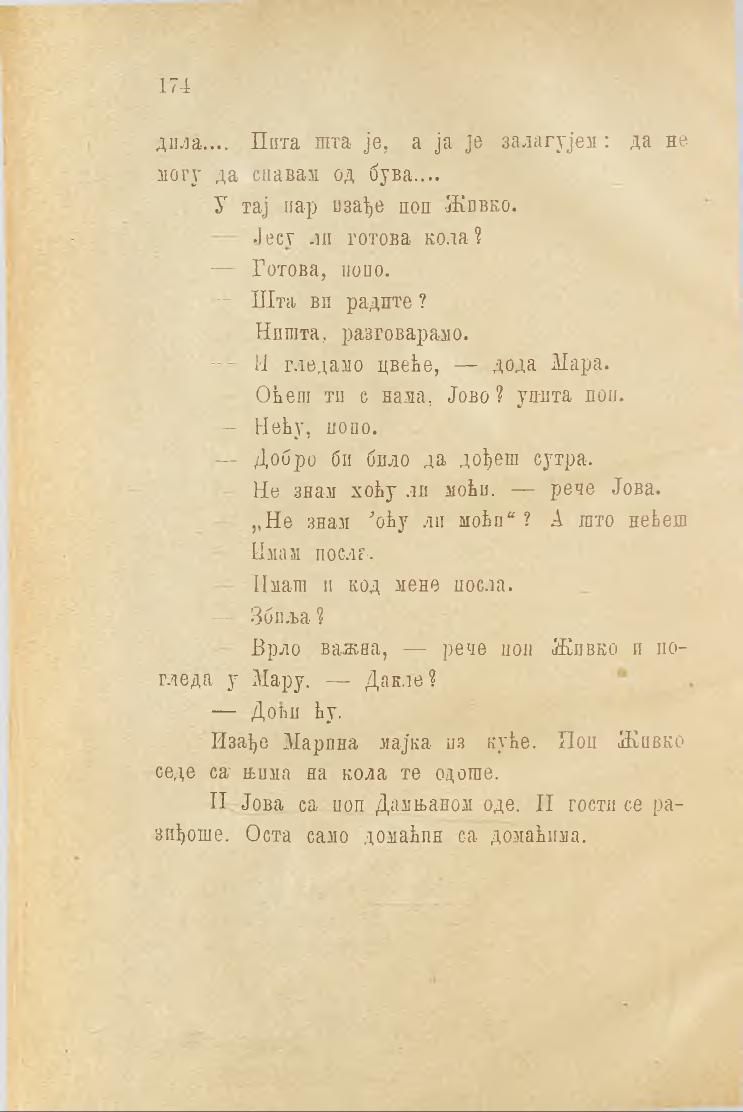 174
дила.... Пита шта је, а ја је залагујем : да не
могу да спавам од бува....
У тај пар изађе поп Живко.
— Јесу ли готова кола ?
— Готова, попо.
— Шта ви радите ?
Ништа, разговарамо.
— И гледамо цвеће, — дода Мара.
Оћеш ти с нама, Јово ? упита поп.
— Нећу, попо.
— Добро би било да дођеш сутра.
— Не знам хоћу ли моћи. — рече Јова.
— „Не знам ’оћу ли моћи“ ? А што нећеш
— Имам посла.
— Имаш и код мене посла.
— Збиља ?
— Врло важна, — рече поп Живко и по-
гледа у Мару. — Дакле ?
— Доћи ћу.
Изађе Марина мајка из куће. Поп Живко
седе са њима на кола те одоше.
И Јова са поп Дамњаном оде. И гости се ра-
зиђоше. Оста само домаћин са домаћима.